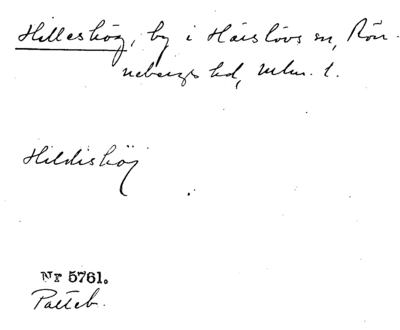 Hilleshög, by i Härslövs sn, Rön-
nebergs hd, Mlm. l.
Hildishöj
Nr 5761.